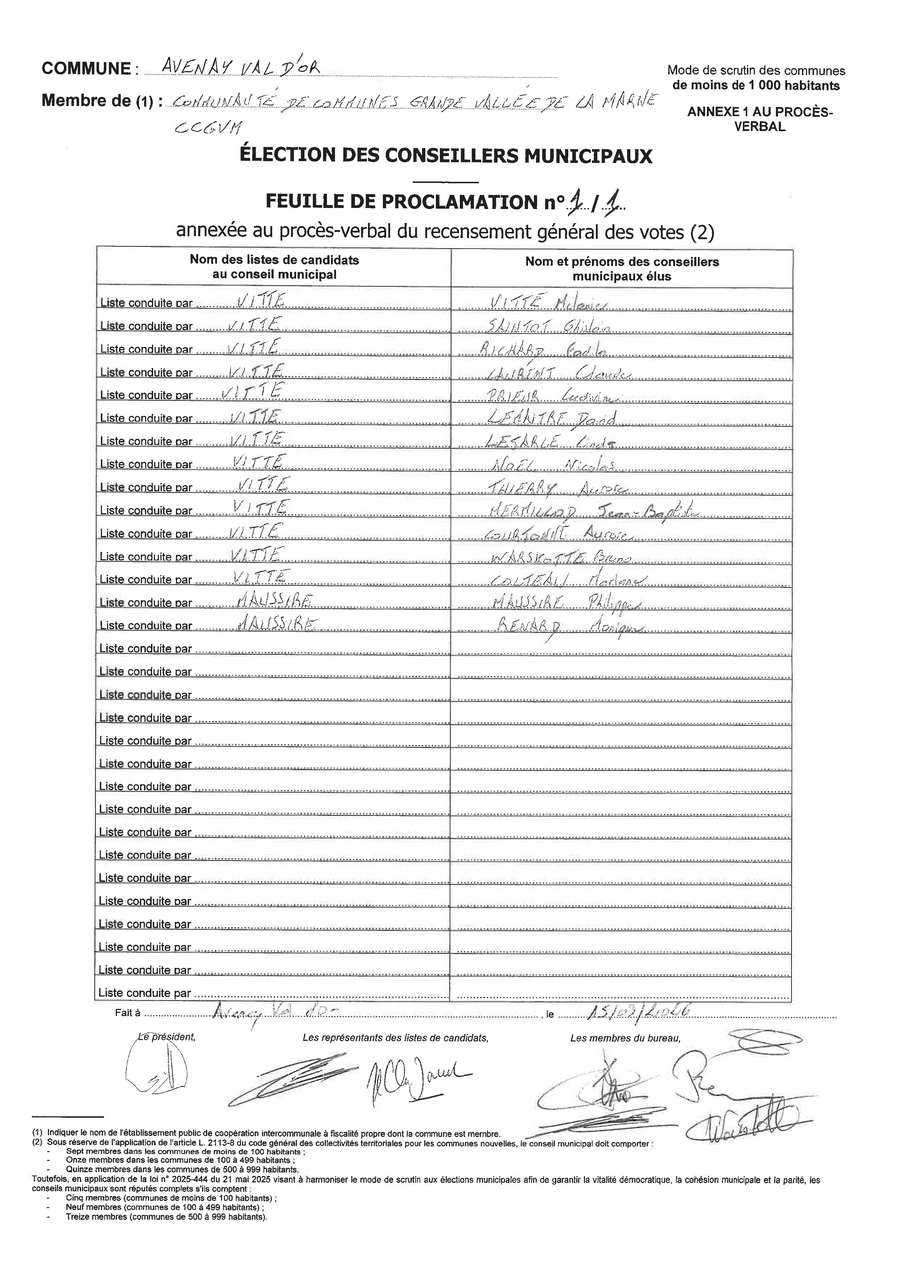 COMMUNE : AVENAY VAL D'OR
Mode de scrutin des communes
de moins de 1 000 habitants
Membre de (1) : COMMUNAUTÉ DE COMMUNES GRANDE VALLÉE DE LA MARNE
CCGVM
ANNEXE 1 AU PROCÈS-
VERBAL
ÉLECTION DES CONSEILLERS MUNICIPAUX
FEUILLE DE PROCLAMATION n° 1 / 1
annexée au procès-verbal du recensement général des votes (2)
Nom des listes de candidats
au conseil municipal
Nom et prénoms des conseillers
municipaux élus
Liste conduite par VITTE VITTE Melanie
Liste conduite par VITTE SAINTOT Ghislain
Liste conduite par VITTE RICHARD
Liste conduite par VITTE LAURENT Claude
Liste conduite par VITTE PRIEUR Ludivine
Liste conduite par VITTE LEMAITRE David
Liste conduite par VITTE LESARLE Linda
Liste conduite par VITTE NOËL Nicolas
Liste conduite par VITTE THIERRY Aurore
Liste conduite par VITTE MERMILLOD Jean-Baptiste
Liste conduite par VITTE Aurore
Liste conduite par VITTE WARSKOTTE Bruno
Liste conduite par VITTE COLTEAU
Liste conduite par MAUSSIRE MAUSSIRE Philippe
Liste conduite par MAUSSIRE RENARD Monique
Liste conduite par
Liste conduite par
Liste conduite par
Liste conduite par
Liste conduite par
Liste conduite par
Liste conduite par
Liste conduite par
Liste conduite par
Liste conduite par
Liste conduite par
Liste conduite par
Liste conduite par
Liste conduite par
Liste conduite par
Liste conduite par
Fait à Avenay Val d'or , le 15/03/2026
Le président,
Les représentants des listes de candidats,
Les membres du bureau,
(1) Indiquer le nom de l'établissement public de coopération intercommunale à fiscalité propre dont la commune est membre.
(2) Sous réserve de l'application de l'article L. 2113-8 du code général des collectivités territoriales pour les communes nouvelles, le conseil municipal doit comporter :
- Sept membres dans les communes de moins de 100 habitants ;
- Onze membres dans les communes de 100 à 499 habitants ;
- Quinze membres dans les communes de 500 à 999 habitants.
Toutefois, en application de la loi n° 2025-444 du 21 mai 2025 visant à harmoniser le mode de scrutin aux élections municipales afin de garantir la vitalité démocratique, la cohésion municipale et la parité, les
conseils municipaux sont réputés complets s'ils comptent :
- Cinq membres (communes de moins de 100 habitants) ;
- Neuf membres (communes de 100 à 499 habitants) ;
- Treize membres (communes de 500 à 999 habitants).